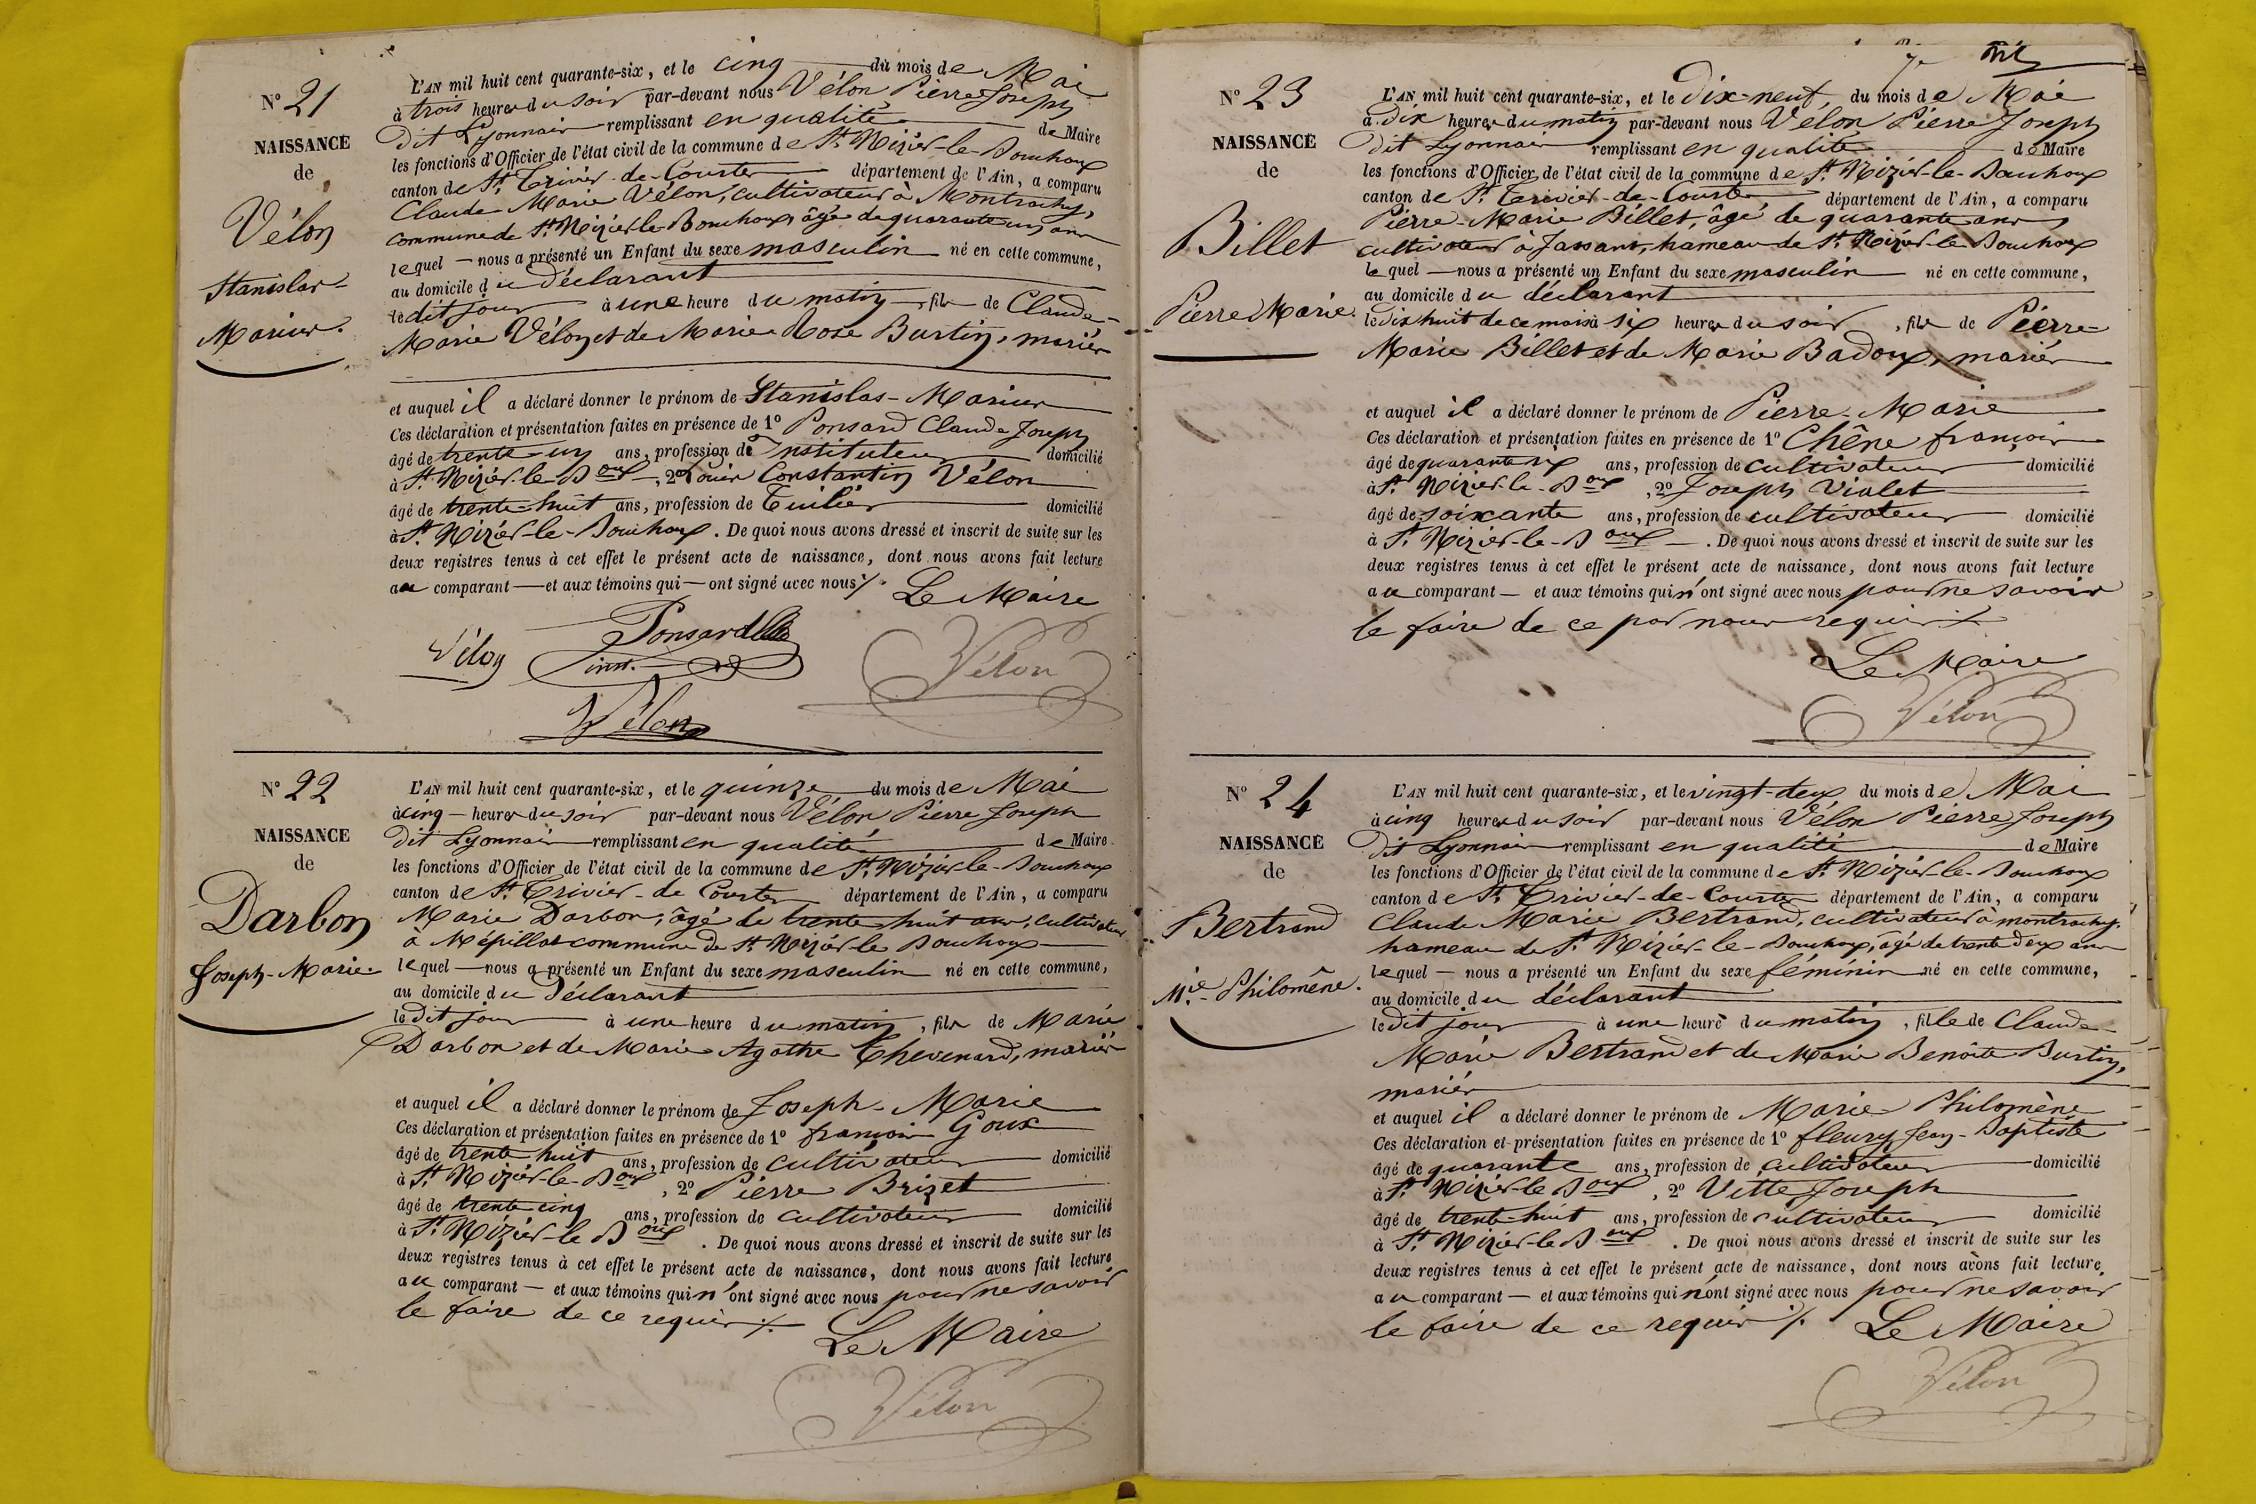 N° 21
NAISSANCE
de
Vélon
Stanislas-
Marius.
L'AN mil huit cent quarante-six, et le cinq du mois de Mai
à trois heures du soir par-devant nous Vélon Pierre Joseph
dit Lyonnais remplissant en qualité de Maire
les fonctions d'Officier de l'état civil de la commune de St. Nizier-le-Bouhoux
canton de St. Trivier-de-Courtes département de l'Ain, a comparu
Claude Marie Vélon, cultivateur à Montrachy,
commune de St. Nizier-le-Bouhoux, âgé de quarante un ans
lequel — nous a présenté un Enfant du sexe masculin né en cette commune,
au domicile du déclarant
ledit jour à une heure du matin, fils de Claude-
Marie Vélon et de Marie Rose Burtin, mariés
et auquel il a déclaré donner le prénom de Stanislas-Marius
Ces déclaration et présentation faites en présence de 1° Ponsard Claude Joseph
âgé de trente-un ans, profession de Instituteur domicilié
à St. Nizier-le-Boux, 2° Louis Constantin Vélon
âgé de trente-huit ans, profession de Tuilier domicilié
à St. Nizier-le-Bouhoux. De quoi nous avons dressé et inscrit de suite sur les
deux registres tenus à cet effet le présent acte de naissance, dont nous avons fait lecture
au comparant — et aux témoins qui — ont signé avec nous ./. Le Maire
Vélon Ponsard
inst. Vélon
Vélon
N° 22
NAISSANCE
de
Darbon
Joseph-Marie.
L'AN mil huit cent quarante-six, et le quinze du mois de Mai
à cinq — heures du soir par-devant nous Vélon Pierre Joseph
dit Lyonnais remplissant en qualité de Maire
les fonctions d'Officier de l'état civil de la commune de St. Nizier-le-Bouhoux
canton de St. Trivier-de-Courtes département de l'Ain, a comparu
Marie Darbon, âgé de trente-huit ans, cultivateur
à Mépillat commune de St. Nizier-le-Bouhoux
lequel — nous a présenté un Enfant du sexe masculin né en cette commune,
au domicile du Déclarant
ledit jour à une heure du matin, fils de Marie
Darbon et de Marie Agathe Thevenard, mariés
et auquel il a déclaré donner le prénom de Joseph-Marie
Ces déclaration et présentation faites en présence de 1° françois Goux
âgé de trente huit ans, profession de cultivateur domicilié
à St. Nizier-le-Boux, 2° Pierre Brizet
âgé de trente cinq ans, profession de cultivateur domicilié
à St. Nizier-le Boux. De quoi nous avons dressé et inscrit de suite sur les
deux registres tenus à cet effet le présent acte de naissance, dont nous avons fait lecture
au comparant — et aux témoins qui n'ont signé avec nous pour ne savoir
le faire de ce requis ./. Le Maire
Vélon
N° 23
NAISSANCE
de
Billet
Pierre Marie.
L'AN mil huit cent quarante-six, et le Dix-neuf, du mois de Mai
à dix heures du matin par-devant nous Vélon Pierre Joseph
dit Lyonnais remplissant en qualité de Maire
les fonctions d'Officier de l'état civil de la commune de St. Nizier-le-Bouhoux
canton de St. Trivier-de-Courtes département de l'Ain, a comparu
Pierre-Marie Billet, âgé de quarante ans
cultivateur à Jassans, hameau de St. Nizier-le-Bouhoux
lequel — nous a présenté un Enfant du sexe masculin né en cette commune,
au domicile du déclarant
le dix huit de ce mois à six heures du soir, fils de Pierre-
Marie Billet et de Marie Badoux, mariés
et auquel il a déclaré donner le prénom de Pierre-Marie
Ces déclaration et présentation faites en présence de 1° Chêne françois
âgé de quarante six ans, profession de cultivateur domicilié
à St. Nizier-le-Boux, 2° Joseph Vialet
âgé de soixante ans, profession de cultivateur domicilié
à St. Nizier-le-Boux. De quoi nous avons dressé et inscrit de suite sur les
deux registres tenus à cet effet le présent acte de naissance, dont nous avons fait lecture
au comparant — et aux témoins qui n'ont signé avec nous pour ne savoir
le faire de ce par nous requis ./.
Le Maire
Vélon
N° 24
NAISSANCE
de
Bertrand
Mie. Philomène.
L'AN mil huit cent quarante-six, et le vingt-deux du mois de Mai
à cinq heures du soir par-devant nous Vélon Pierre Joseph
dit Lyonnais remplissant en qualité de Maire
les fonctions d'Officier de l'état civil de la commune de St. Nizier-le-Bouhoux
canton de St. Trivier-de-Courtes département de l'Ain, a comparu
Claude Marie Bertrand, cultivateur à montrachy,
hameau de St. Nizier-le-Bouhoux, âgé de trente deux ans
lequel — nous a présenté un Enfant du sexe féminin né en cette commune,
au domicile du déclarant
ledit jour à une heure du matin, fille de Claude-
Marie Bertrand et de Marie Benoite Burtin,
mariés
et auquel il a déclaré donner le prénom de Marie-Philomène
Ces déclaration et présentation faites en présence de 1° fleury Jean-Baptiste
âgé de quarante ans, profession de cultivateur domicilié
à St. Nizier-le Boux, 2° Vitte Joseph
âgé de trente-huit ans, profession de cultivateur domicilié
à St. Nizier-le Boux. De quoi nous avons dressé et inscrit de suite sur les
deux registres tenus à cet effet le présent acte de naissance, dont nous avons fait lecture
au comparant — et aux témoins qui n'ont signé avec nous pour ne savoir
le faire de ce requis ./. Le Maire
Vélon